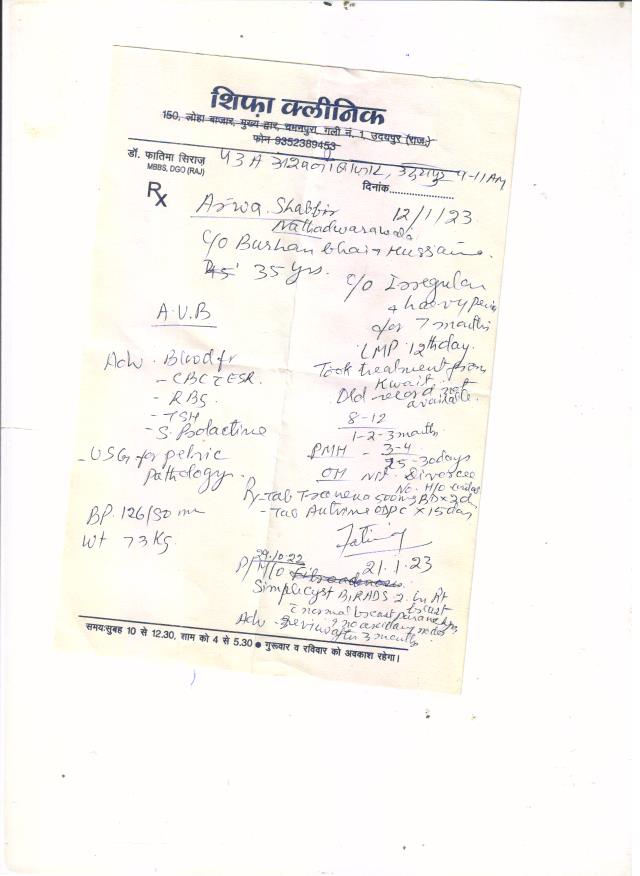 शिफ़ा क्लीनिक
150, लोहा बाजार, मुख्य द्वार, चमनपुरा, गली नं. 1, उदयपुर (राज.)
फोन 9352389453
डॉ. फातिमा सिराज
MBBS, DGO (RAJ)
दिनांक....................
9-11 AM
Rx
Arwa Shabbir
12/1/23
Nathadwarawala
C/o Burhan bhai Hussaina
35 yrs.
C/o Irregular
+ heavy
for 7 months
A.U.B
LMP 12th day.
Took treatment from
Kuwait.
Old record not
available.
Adv. Blood for
- CBC ESR.
- RBS.
- TSH
- S. Prolactine
8-12
1-2-3 months
PMH - 3-4
25-30 days
- USG for pelvic
Pathology.
OH Divorcee
No. H/O
Rx - Tab 500mg BD x 3d
- Tab x 15 day
BP. 126/80 mm
Wt 73 Kg.
21.1.23
29.10.22
Simple cyst BIRADS 2. in Rt
breast
normal breast
no axillary nodes
Adv - Review after 3 months
समय:सुबह 10 से 12.30, शाम को 4 से 5.30 ● गुरूवार व रविवार को अवकाश रहेगा।